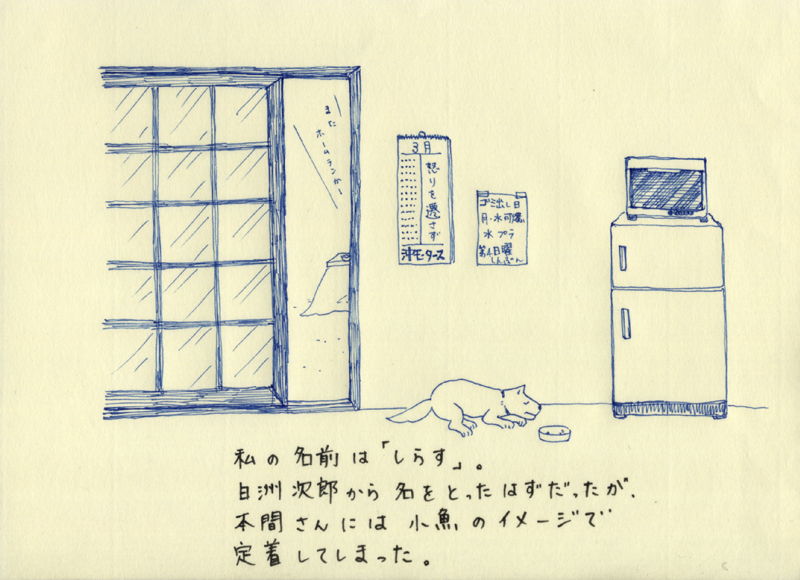 また
3月
怒りを遷さず
沖モータース
ゴミ出し日
月・水 可燃
水 プラ
第4日曜
しんぶん
私の名前は「しらす」。
白洲次郎から名をとったはずだったが、
本間さんには小魚のイメージで
定着してしまった。